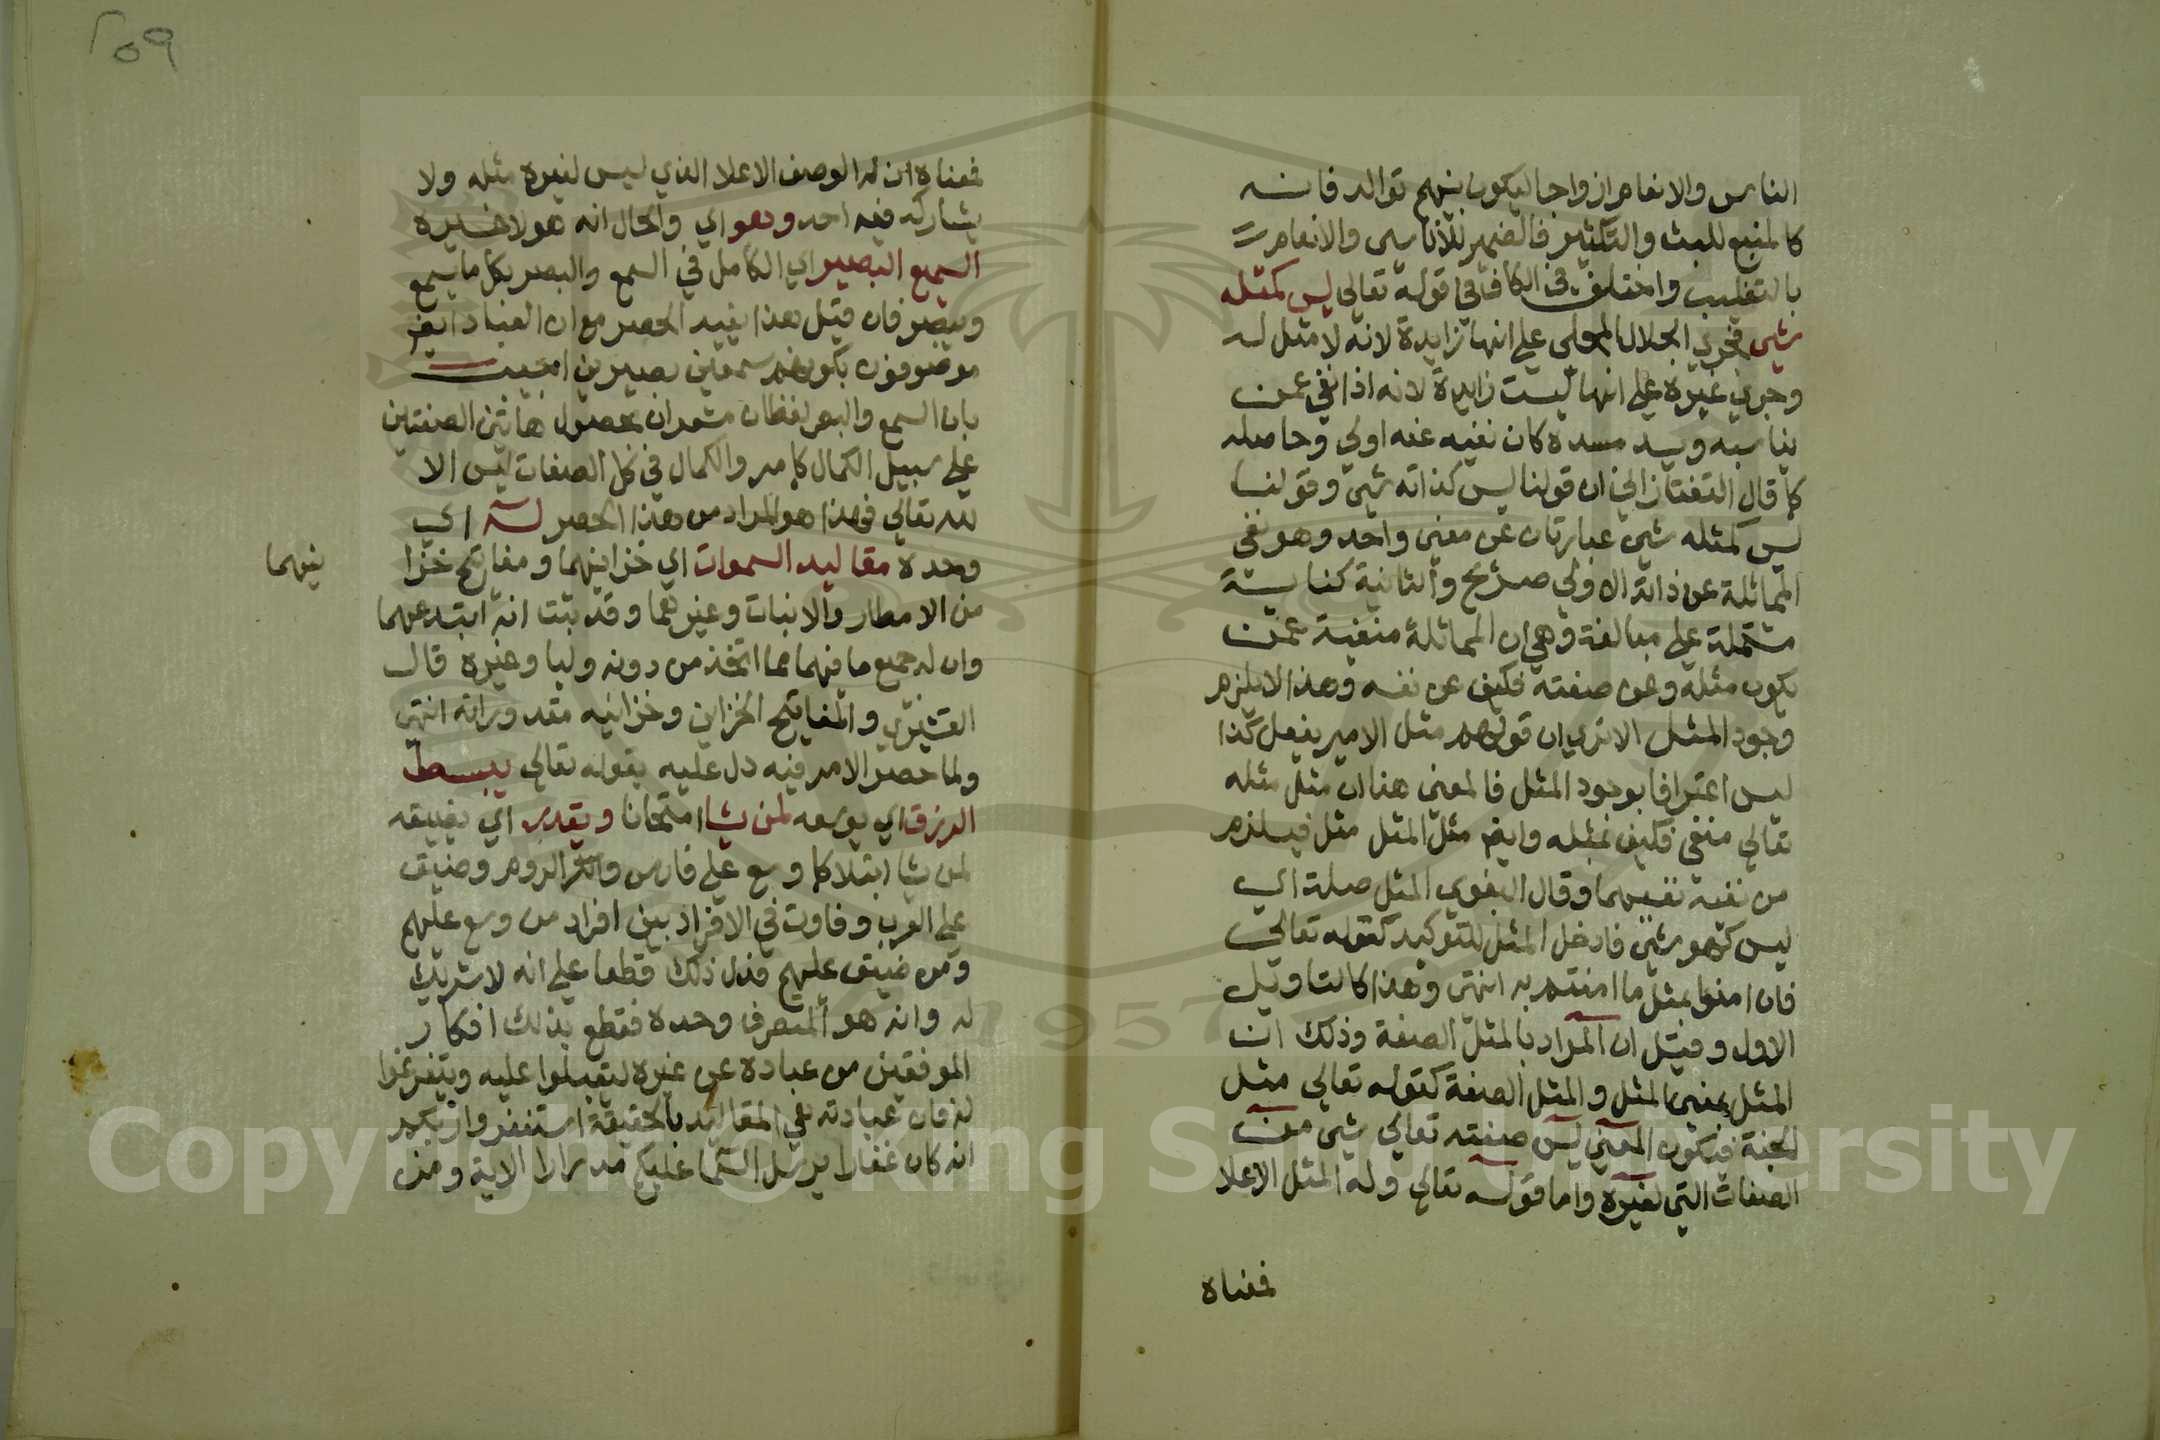 الناس والانعام ازواجا ليكون بينهم توالد فانه
كالمنبع للبث والتكثير فالضمير للاناسي والانعام
بالتغليب واختلف في الكاف في قوله تعالي ليس كمثله
شي فجري الجلال المحلي علي انها زايدة لانه لا مثل له
وجري غيره علي انها ليست زايدة لانه اذا نفي عمن
يناسبه ويسد مسده كان نفيه عنه اولي وحاصله
كما قال التفتازاني ان قولنا ليس كذاته شي وقولنا
ليس كمثله شي عبارتان عن معني واحد وهو نفي
المماثلة عن ذاته الاولي صريح والثانية كناية
مشتملة علي مبالغة وهي ان المماثلة منفية عمن
يكون مثله وعن صفته فكيف عن نفسه وهذا لا يلزم
وجود المثل الا تري ان قولهم مثل الامير يفعل كذا
ليس اعترافا بوجود المثل فالمعني هنا ان مثل مثله
تعالي منفي فكيف بمثله وايض مثل المثل مثل فيلزم
من نفيه نفيهما وقال البغوي المثل صلة اي
ليس كهو شي فادخل المثل للتوكيد كقوله تعالي
فان امنوا بمثل ما امنتم به انتهي وهذا كالتاويل
الاول وقيل ان المراد بالمثل الصفة وذلك ان
المثل بمعني المثل والمثل الصفة كقوله تعالي مثل
الجنة فيكون المعني ليس صفته تعالي شي من
الصفات التي لغيره واما قوله تعالي وله المثل الاعلا
فمعناه
٢٥٩
فمعناه ان له الوصف الاعلا الذي ليس لغيره مثله ولا
يشاركه فيه احد وهو اي والحال انه هو لا غيره
السميع البصير اي الكامل في السمع والبصر بكل ما يسمع
ويبصر فان قيل هذا يفيد الحصر مع ان العباد ايض
موصوفون بكونهم سميعين بصيرين اجيب
بان السمع والبصر لفظان مشعران بحصول هاتين الصفتين
علي سبيل الكمال كما مر والكمال في كل الصفات ليس الا
لله تعالي فهذا هو المراد من هذا الحصر له اي
وحده مقاليد السموات اي خزاينهما ومفاتيح خزا
ينهما
من الامطار والانبات وغيرهما وقد ثبت انه ابتدعهما
وان له جميع ما فيهما مما اتخذ من دونه وليا وغيره قال
القشيري والمفاتيح الخزاين وخزاينه مقدوراته انتهي
ولما حصر الامر فيه دل عليه بقوله تعالي يبسط
الرزق اي يوسعه لمن يشا امتحانا ويقدر اي يضيقه
لمن يشا ابتلا كما وسع علي فارس والروم وضيق
علي العرب وفاوت في الافراد بين افراد من وسع عليهم
ومن ضيق عليهم فدل ذلك قطعا علي انه لا شريك
له وانه هو المتصرف وحده فقطع بذلك افكار
الموفقين من عباده عن غيره ليقبلوا عليه ويتفرغوا
له فان عبادته هي المقاليد بالحقيقة استغفروا ربكم
انه كان غفارا يرسل السما عليكم مدرارا الاية ومن
Copyright © King Saud University
1957